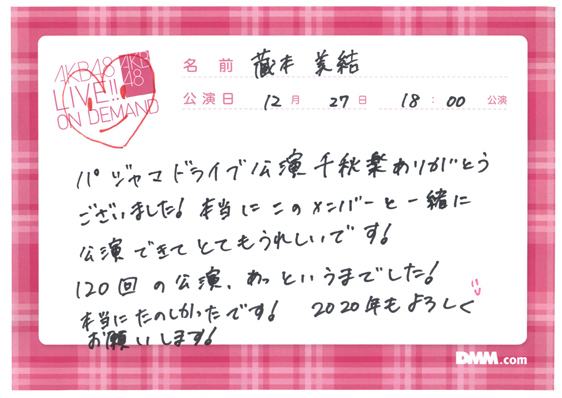 AKB48
LIVE!!
ON DEMAND
AKB
48
名前 蔵本 美結
公演日 12月 27日 18:00 公演
パジャマドライブ公演千秋楽ありがとう
ございました! 本当にこのメンバーと一緒に
公演できてとてもうれしいです!
120回の公演、あっというまでした!
本当にたのしかったです! 2020年もよろしく
お願いします!
DMM.com